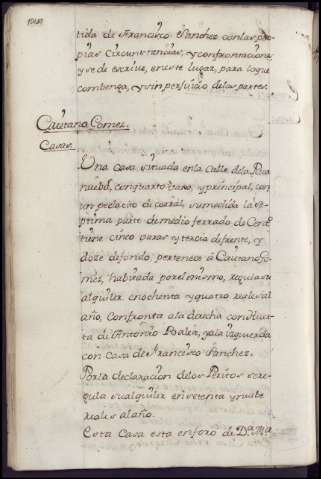 tida de Francisco Sanchez con las pro
pias Circunstancias, y confrontacion
y se describe, en este lugar, para lo que
combenga, y sin perjuicio de las partes.
Caietano Gomez.
Casas
Una Casa situada en la Calle de la Rua
nueba, con quarto vajo, y principal, con
un pedacito de corral, su medida la sep
tima parte de medio ferrado de Cente
tiene cinco varas y tercia de frente, y
doze de fondo, pertenece á Caietano Go
mez, habitada por el mismo, regula su
alquiler en ochenta y quatro reales al
año, Confronta a la derecha con Huer
ta de Antonio y a la izquierda
con Casa de Francisco Sanchez.
Por la declaracion de los Peritos se re
gula su alquiler en setenta y siete
reales al año.
Esta Casa esta en foro de D.ª Mª